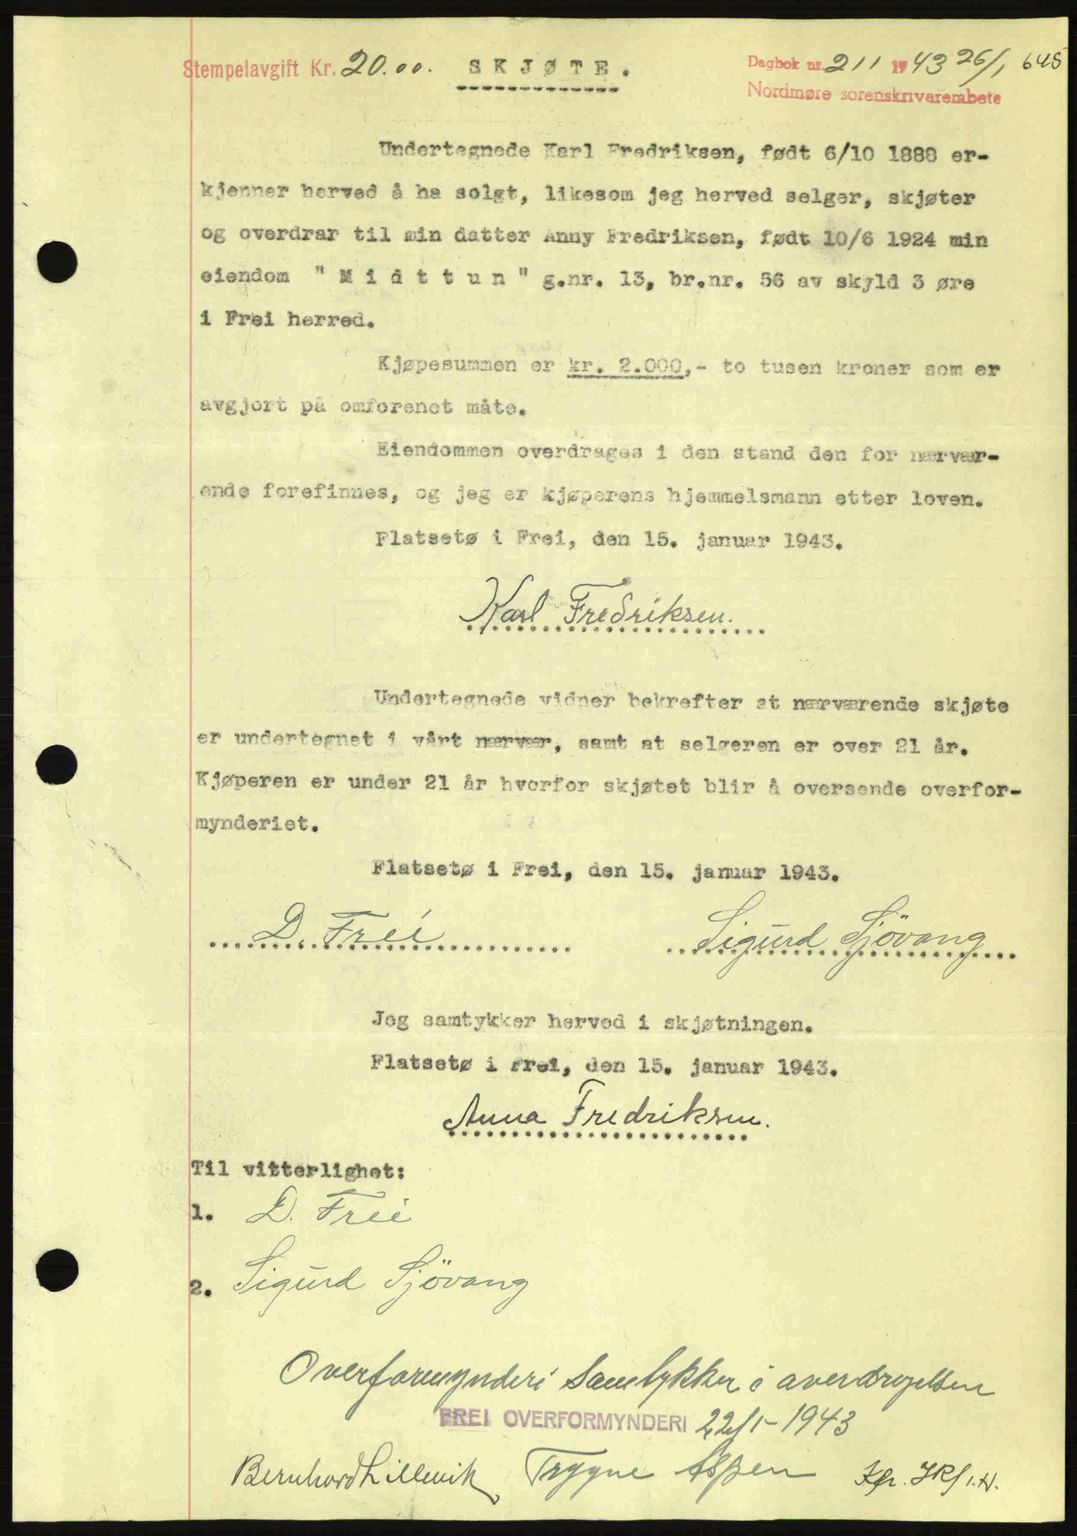 Stempelavgift Kr. 20.00. SKJØTE. Dagbok nr. 211 1943 26/1 645
Nordmøre sorenskriverembete
Undertegnede Karl Fredriksen, født 6/10 1888 er-
kjenner herved å ha solgt, likesom jeg herved selger, skjøter
og overdrar til min datter Anny Fredriksen, født 10/6 1924 min
eiendom " M i d t t u n " g.nr. 13, br.nr. 56 av skyld 3 øre
i Frei herred.
Kjøpesummen er kr. 2.000,- to tusen kroner som er
avgjort på omforenet måte.
Eiendommen overdrages i den stand den for nærvær-
ende forefinnes, og jeg er kjøperens hjemmelsmann etter loven.
Flatsetø i Frei, den 15. januar 1943.
Karl Fredriksen.
Undertegnede vidner bekrefter at nærværende skjøte
er undertegnet i vårt nærvær, samt at selgeren er over 21 år.
Kjøperen er under 21 år hvorfor skjøtet blir å oversende overfor-
mynderiet.
Flatsetø i Frei, den 15. januar 1943.
D. Frei Sigurd Sjövang
Jeg samtykker herved i skjøtningen.
Flatsetø i Frei, den 15. januar 1943.
Anna Fredriksen.
Til vitterlighet:
1. D. Frei
2. Sigurd Sjövang
Overformynderi Samtykker i averdragelsen
FREI OVERFORMYNDERI 22/1-1943
Bernhard Lillevik Trygve Aspen